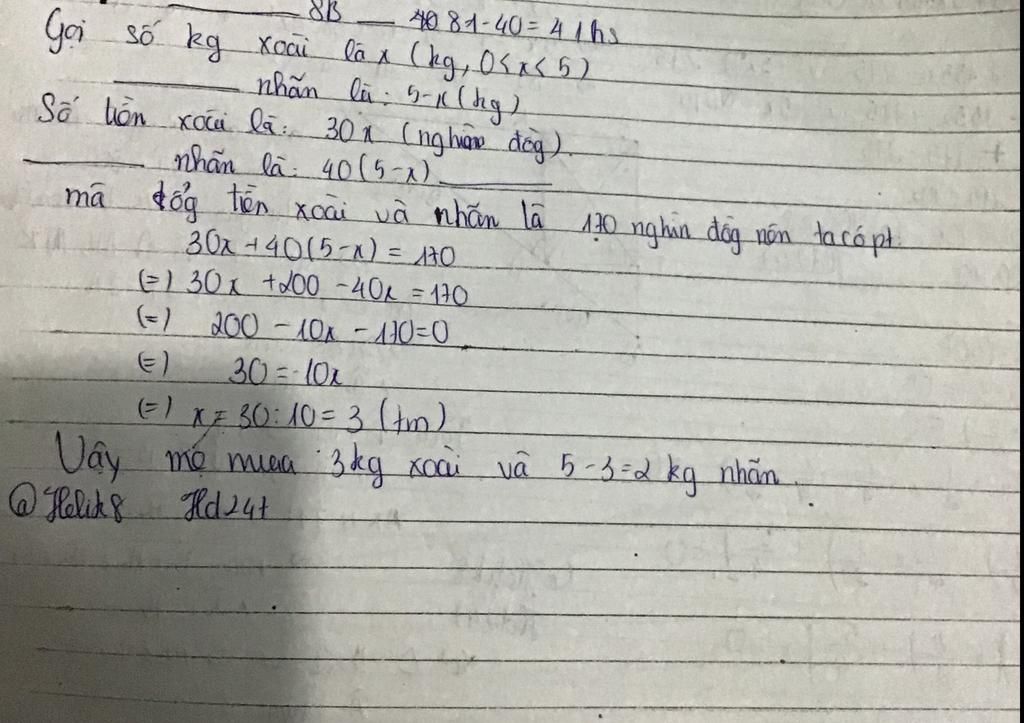 8B 81-40=41hs
Gọi số kg xoài là x (kg, 0<x<5)
nhãn là: 5-x (kg)
Số tiền xoài là: 30x (nghìn đồg)
nhãn là: 40(5-x)
mà tổg tiền xoài và nhãn là 170 nghìn đồg nên ta có pt:
30x+40(5-x)=170
(=) 30x +200 -40x =170
(=) 200 -10x -170=0
(=) 30=10x
(=) x=30:10=3 (tm)
Vậy mẹ mua 3kg xoài và 5-3=2 kg nhãn.
@Helik8 Hd24t